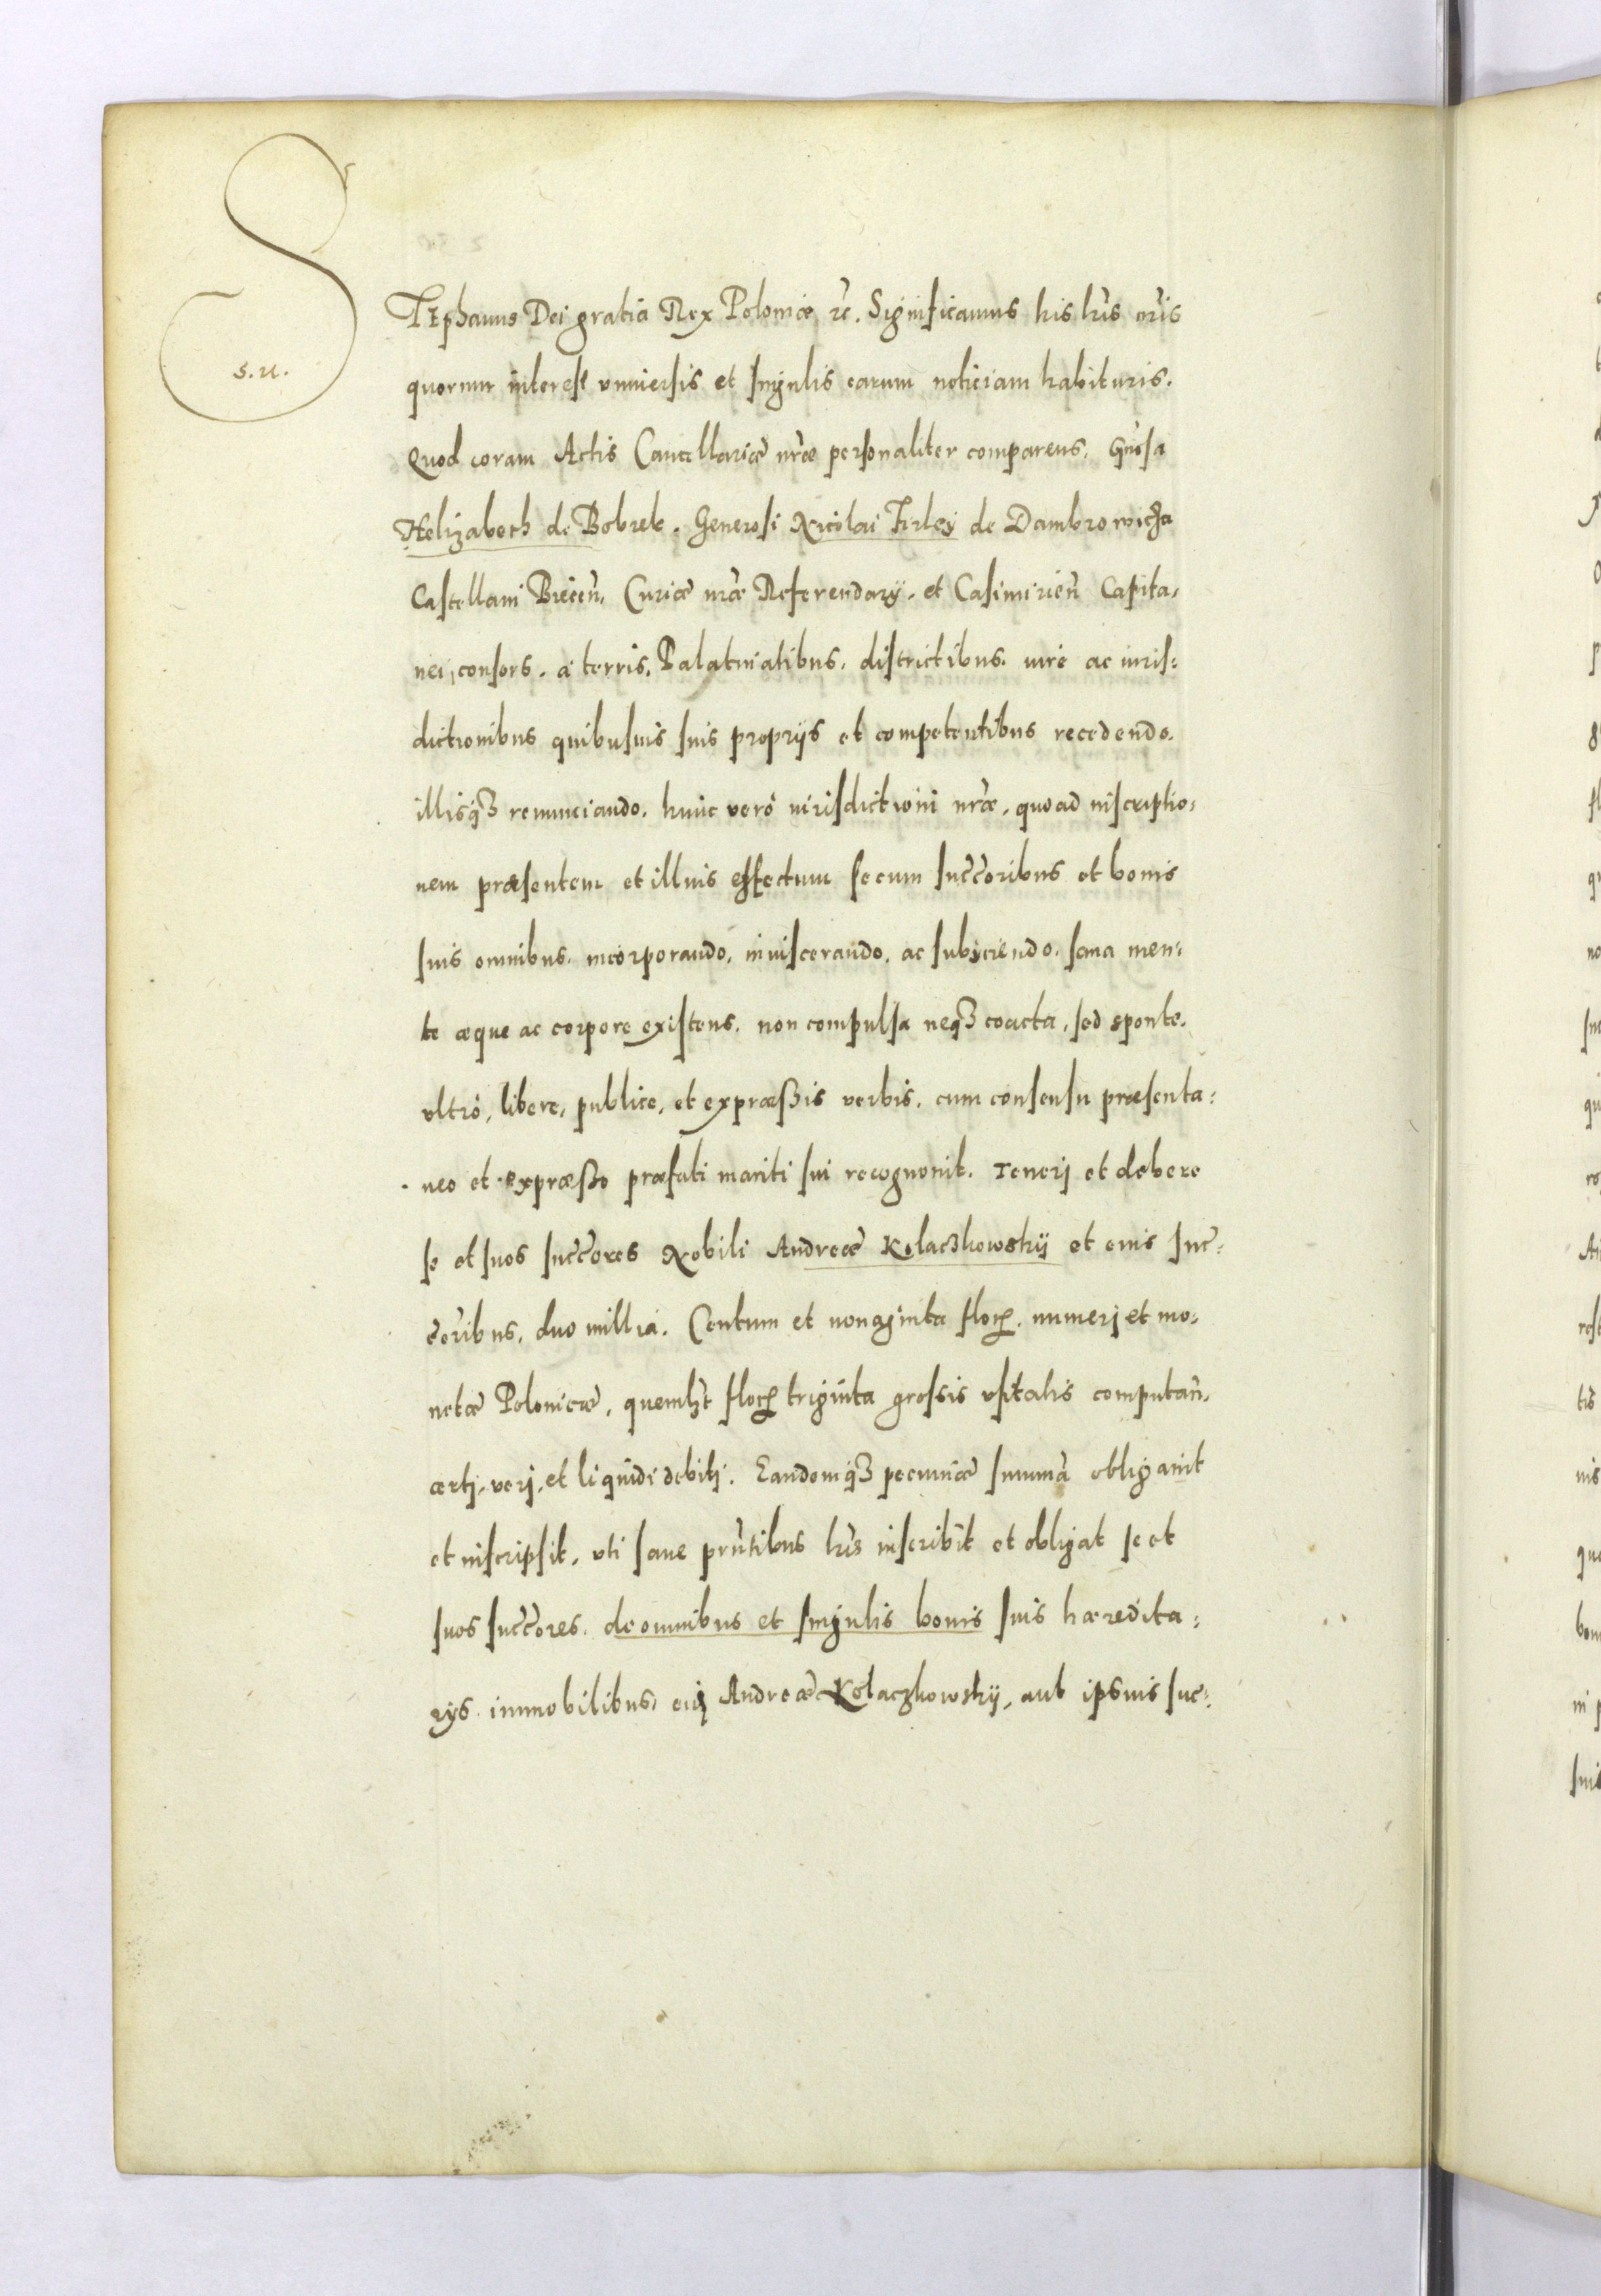 STEphanus Dei gratia Rex Poloniæ ꝛc. Significamus his lr̃is nr̃is
s. n.
quorum interest vniuersis et singulis earum noticiam habituris.
Quod coram Actis Cancellariæ nr̃æ personaliter comparens. Gñosa
Helizabeth de Bobrek. Generosi Nicolai Firlej de Dambrowicza
Castellani Biecen̄. Curiæ nr̃æ Referendarij. et Casimirien̄ Capita,
nei, consors. a terris, Palatinatibus. districtibus. iure ac iuris:
dictionibus quibusuis suis proprijs et competentibus recedendo.
illisqꝫ renunciando. huic verò iurisdictioni nr̃æ, quoad inscriptio:
nem præsentem et illius effectum secum succ̃oribus et bonis
suis omnibus. incorporando, inuiscerando, ac subijciendo. sana men:
te æque ac corpore existens. non compulsa neqꝫ coacta, sed sponte.
vltrò, libere, publice, et expræssis verbis. cum consensu præsenta:
neo et expræsso præfati mariti sui recognouit. Tenerj et debere
se et suos succ̃ores Nobili Andreæ Kolaczkowskij et eius suc:
c̃oribus, duo millia. Centum et nonaginta floꝛ. numerj et mo:
netæ Polonicæ, quemlꝫt floꝛ triginta grossis vsitatis computan̄.
certj, verj, et liquidi debitj. Eandemqꝫ pecuniæ summã obligauit
et inscripsit, vti sane pr̃ntibus lr̃is inscribit et obligat se et
suos succ̃ores. de omnibus et singulis bonis suis hæredita:
rijs immobilibus, eiꝰ Andreæ Kolaczkowskij, aut ipsius suc: